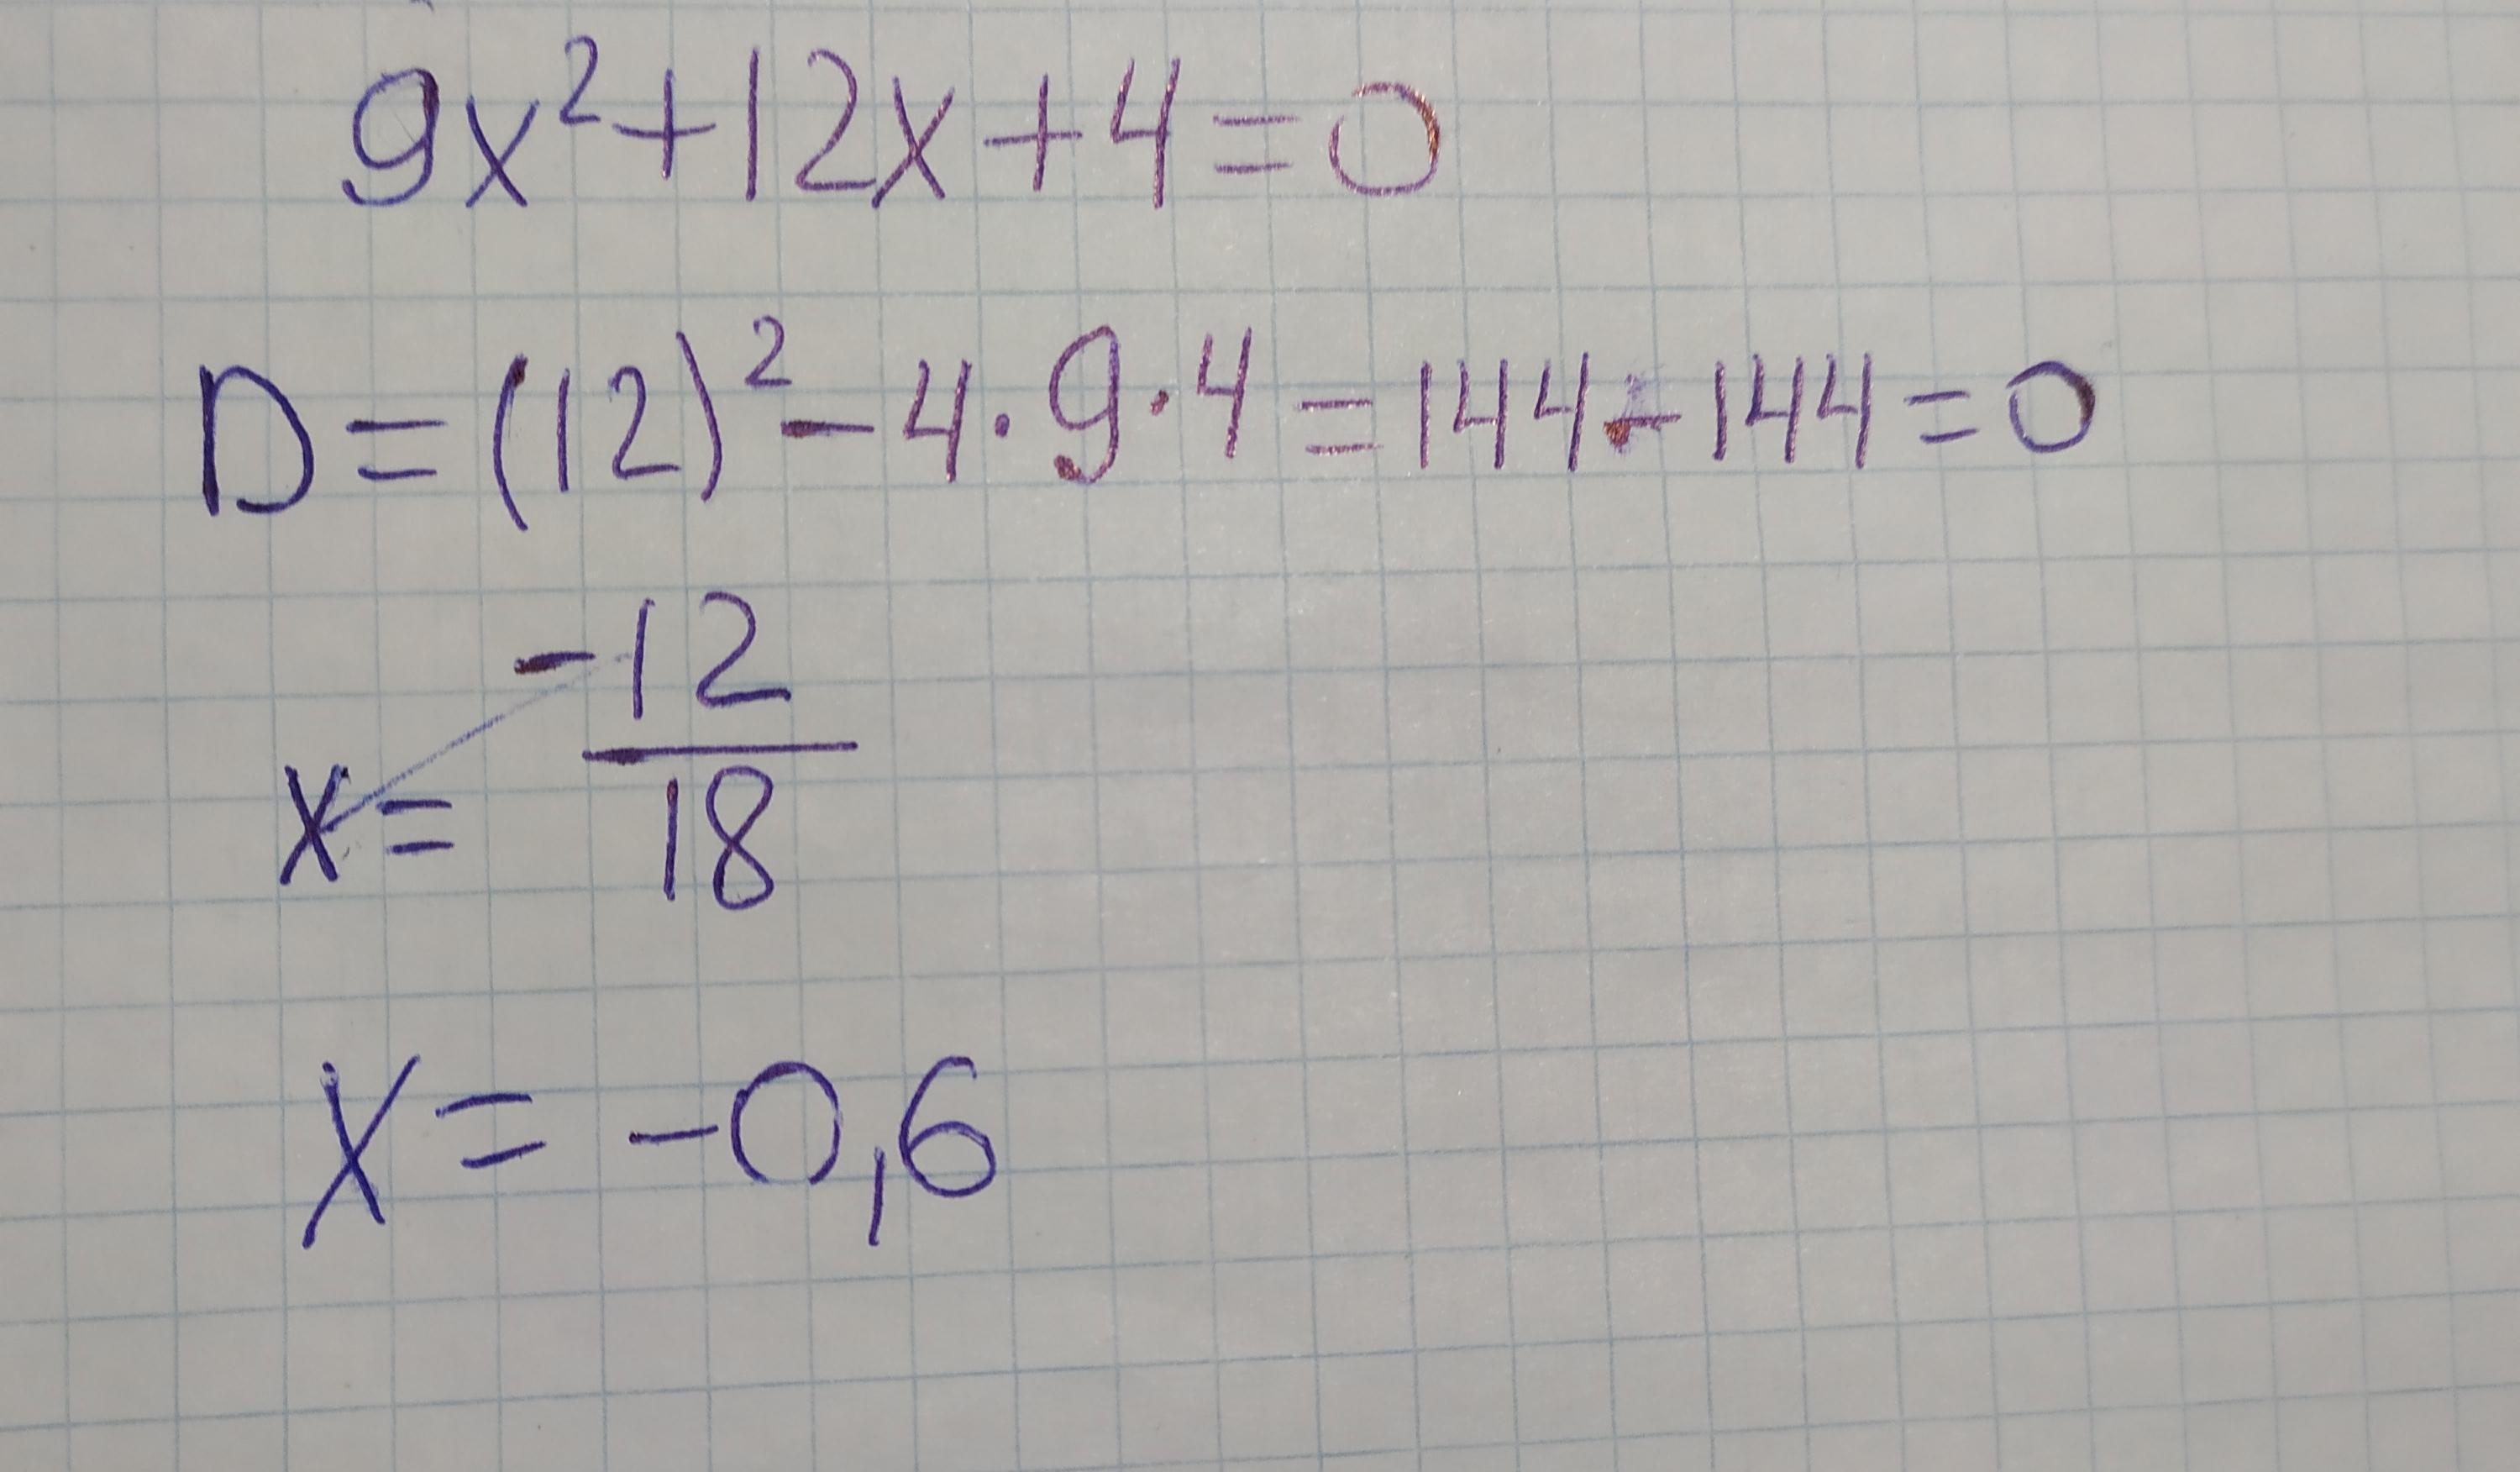 9x²+12x+4=0
D=(12)²-4·9·4=144-144=0
x= -12/18
x=-0,6